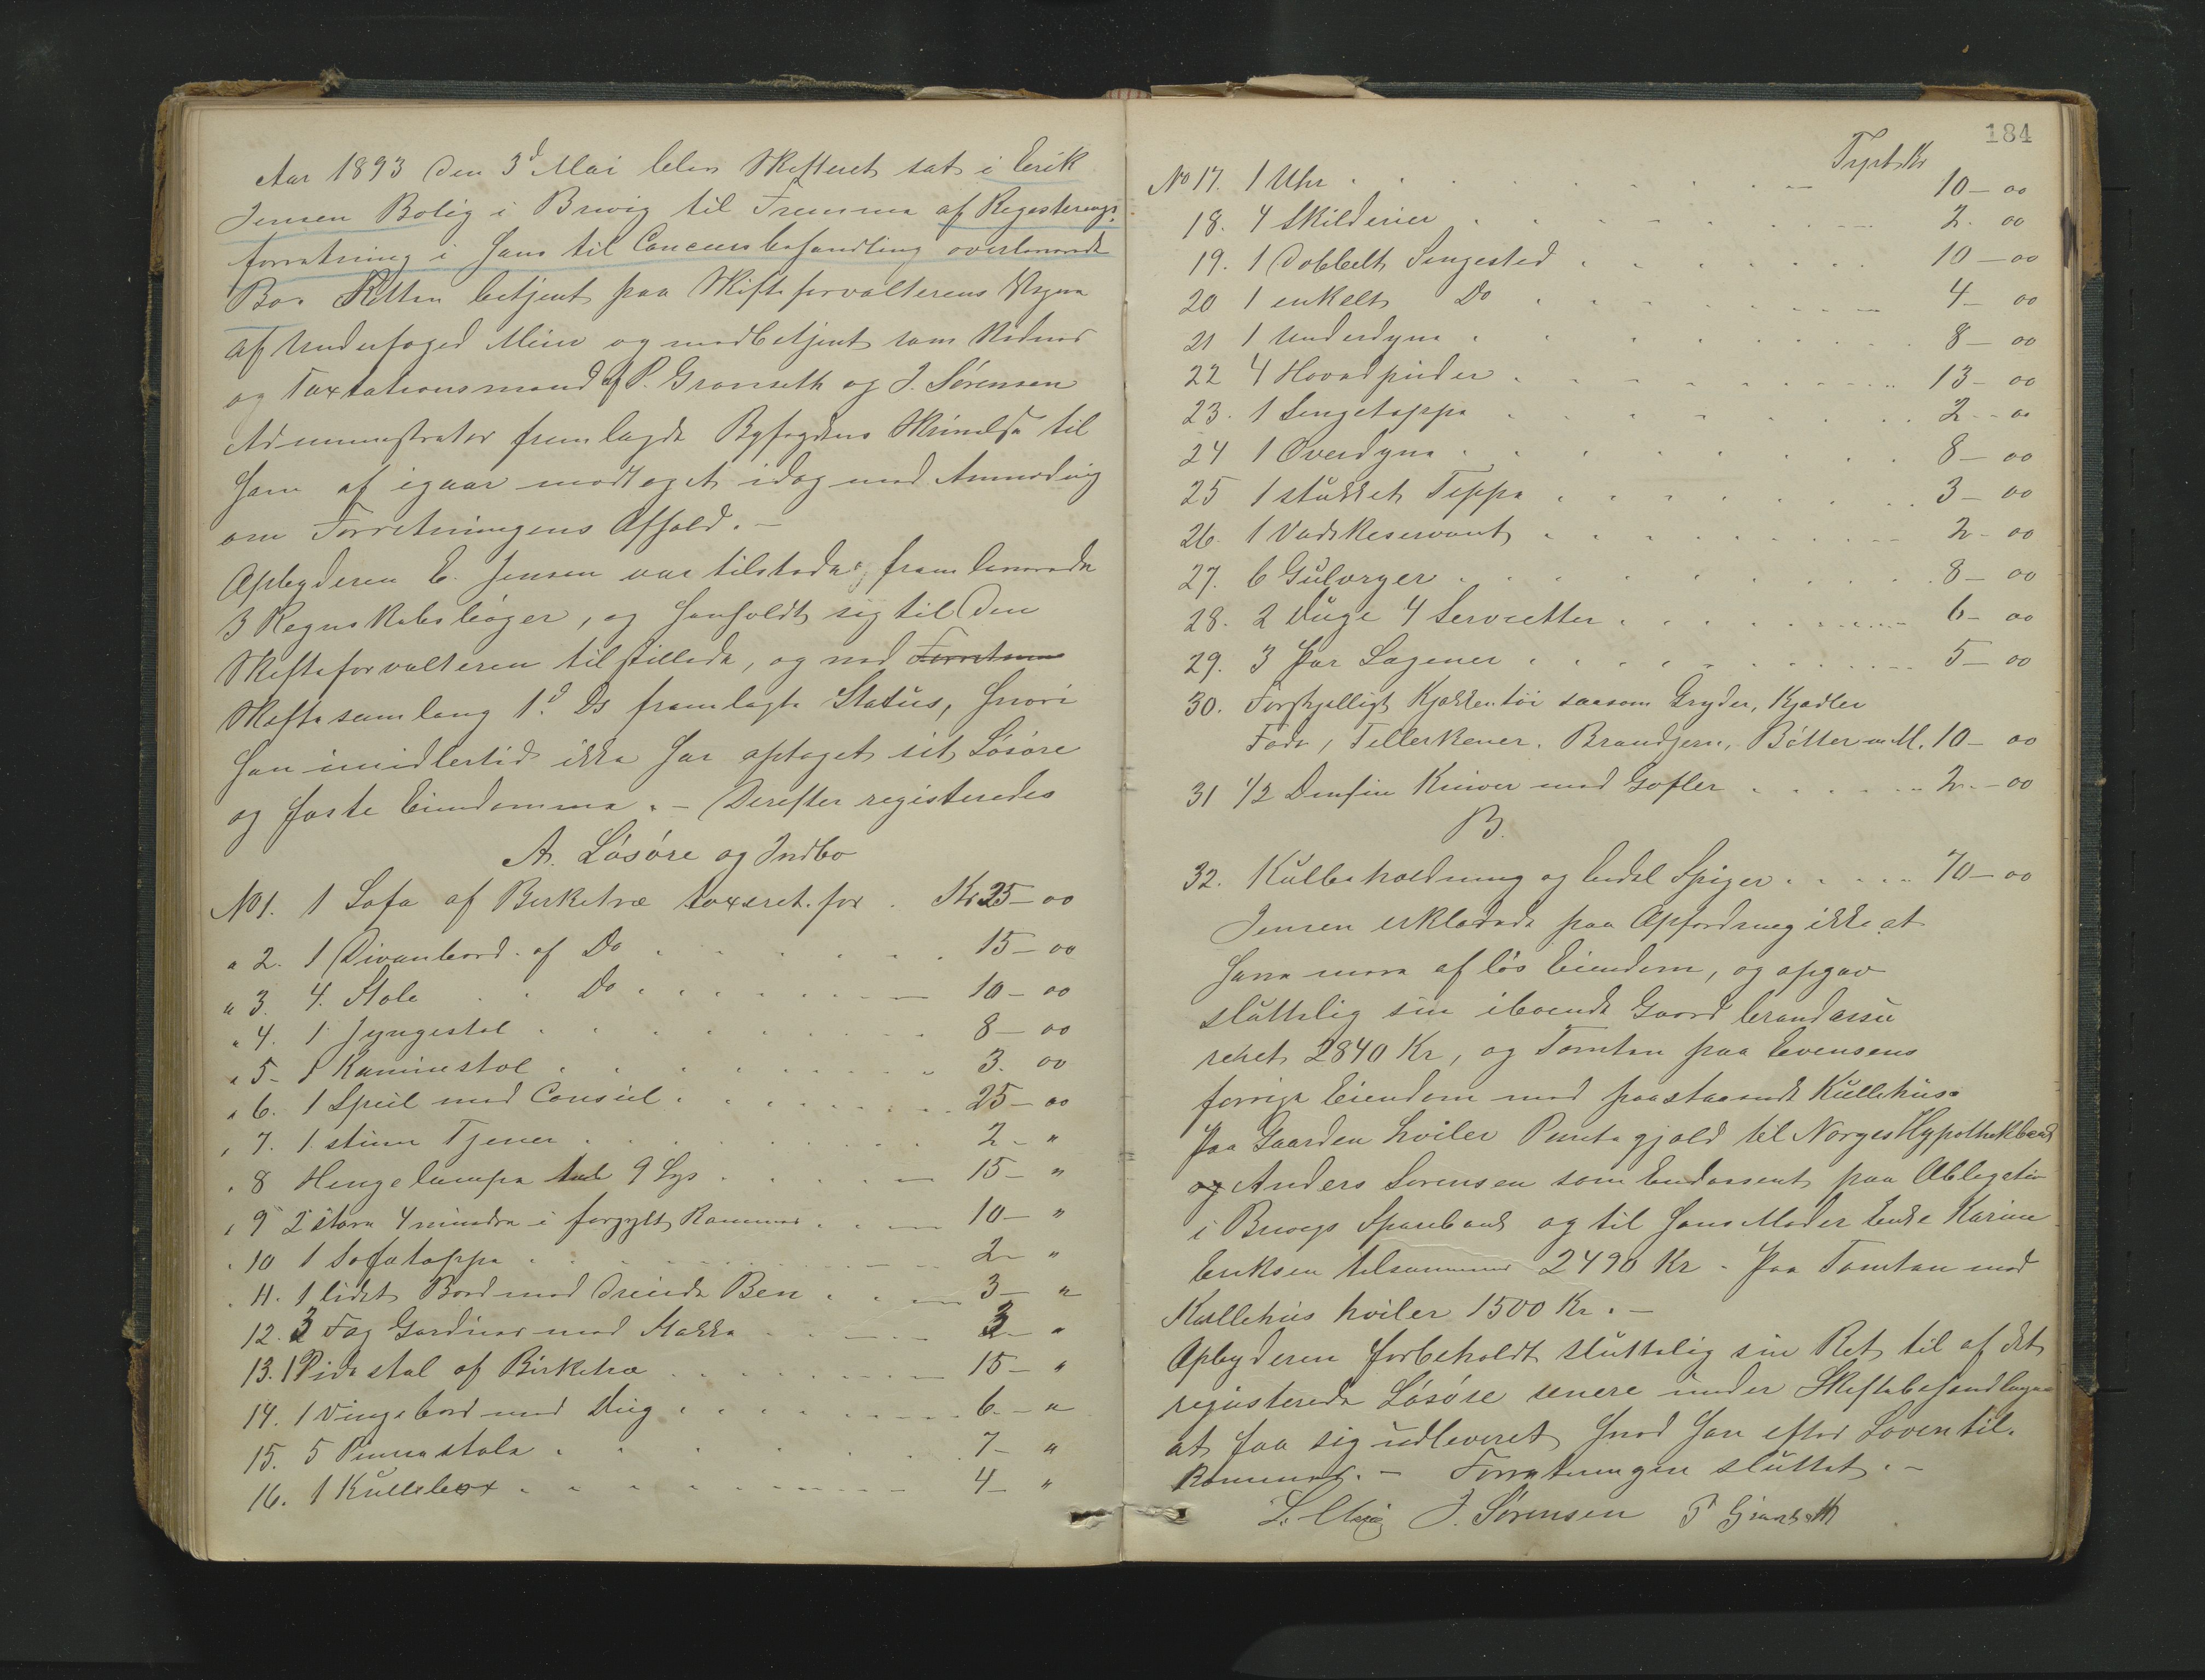 Aar 1893 den 3d Mai blev Skifteret sat i Erik
Jensen Bolig i Brevig til Fremme af Registerings-
forretning i hans til Concursbehandling overleverede
Bo. Retten betjent paa Skifteforvalterens Vegne
af Underfoged Meier og medbetjent som Vidner
og Taxtationsmænd af P. Gronseth og J. Sørensen
Administrator fremlagde Byfogdens Skrivelse til
ham af igaar modtaget idag med Anmodning
om Forretningens Afhold. –
Opbyderen E. Jensen var tilstede, fremleverede
3 Regnskabsbøger, og henholdt sig til den
Skifteforvalteren tilstillede, og ved Forretnin
Skiftesamling 1d Ds fremlagte Status, hvori
han imidlertid ikke har optaget sit Løsøre
og faste Eiendomme. – Derefter registeredes
A. Løsøre og Indbo
No 1. 1 Sofa af Birketræ taxeret for . Kr 25 – 00
" 2. 1 Divanbord af Do . . . 15 – 00
" 3. 4. Stole . . Do . . . 10 – 00
" 4. 1 Gyngestol . . . 8 – 00
" 5. 1 Kaminestol . . . 3. 00
" 6. 1 Speil med Consul . . . 25 – 00
" 7. 1 stum Tjener . . . 2 – "
" 8 Hengelampe 9 Lys . . . 15 – "
" 9 2 store 4 mindre i forgyldt Rammer . . . 10 – "
" 10 1 Sofatæppe . . . 2 – "
" 11. 1 lidet Bord med dreiede Ben . . . 3 – "
12. 3 Fag Gardiner med Stokke . . . 3 – "
13. 1 Pidestal af Birketræ . . . 15 – "
14. 1 Vingebord med Dug . . . 6. – "
15. 5 Pinnestole . . . 7 – "
16. 1 Kullebox . . . 4 – "
184
Trpt. Kr
No 17. 1 Uhr . . . 10 – 00
18. 4 Skilderier . . . 2. 00
19. 1 Dobbelt Sengested . . . 10 – 00
20 1 enkelt Do . . . 4 – 00
21 1 Underdyne . . . 8 – 00
22 4 Hovedpuder . . . 13 – 00
23. 1 Sengetæppe . . . 2 – 00
24 1 Overdyne . . . 8 – 00
25 1 stukket Teppe . . . 3 – 00
26. 1 Vadskeservant . . . 2 – 00
27. 6 Gulvryer . . . 8 – 00
28. 2 Duge 4 Servietter . . . 6 – 00
29. 3 Par Lagener . . . 5 – 00
30. Forskjelligt Kjøkkentøi saasom Gryder, Kjedler
Fade, Tellerkener. Brandjern, Bøtter m M. 10 – 00
31 1/2 Dousin Kniver med Gafler . . . 2. – 00
B.
32. Kulbeholdning og endel Spiger . . . 70 – 00
Jensen erklærede paa Opfordring ikke at
have mere af løs Eiendom, og opgav
sluttelig sin iboende Gaard brandassu
reret 2840 Kr, og Tomten paa Evensens
forrige Eiendom med paastaaende Kullehus.
Paa Gaarden hviler Pantegjæld til Norges Hypothekbank
og Anders Sørensen som Endossent paa Obligation
i Brevigs Sparebank og til hans Moder Enke Karine
Eriksen tilsammen 2490 Kr – Paa Tomten med
Kullehus hviler 1500 Kr. –
Opbyderen forbeholdt sluttelig sin Ret til af det
registerede Løsøre senere under Skiftebehandlingen
at faa sig udleveret hvad han efter Loven til-
kommer. – Forretningen sluttet. –
J. Sørensen P Gronseth